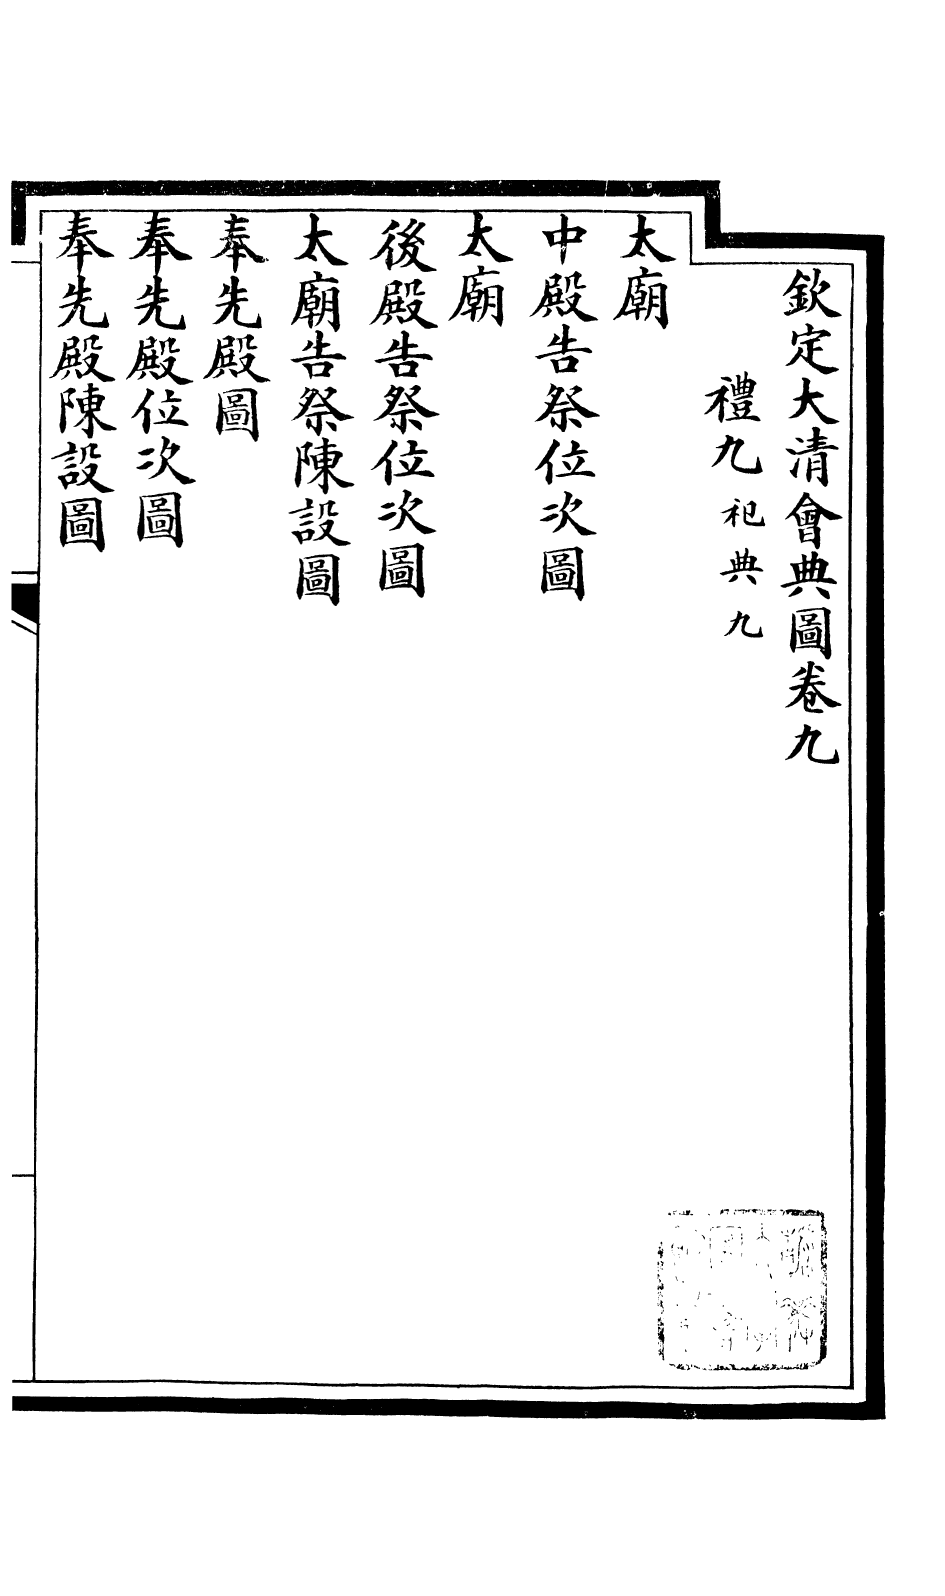 欽定大清會典圖卷九
禮九祀典九
太廟
中殿告祭位次圖
太廟
後殿告祭位次圖
太廟告祭陳設圖
奉先殿圖
奉先殿位次圖
奉先殿陳設圖